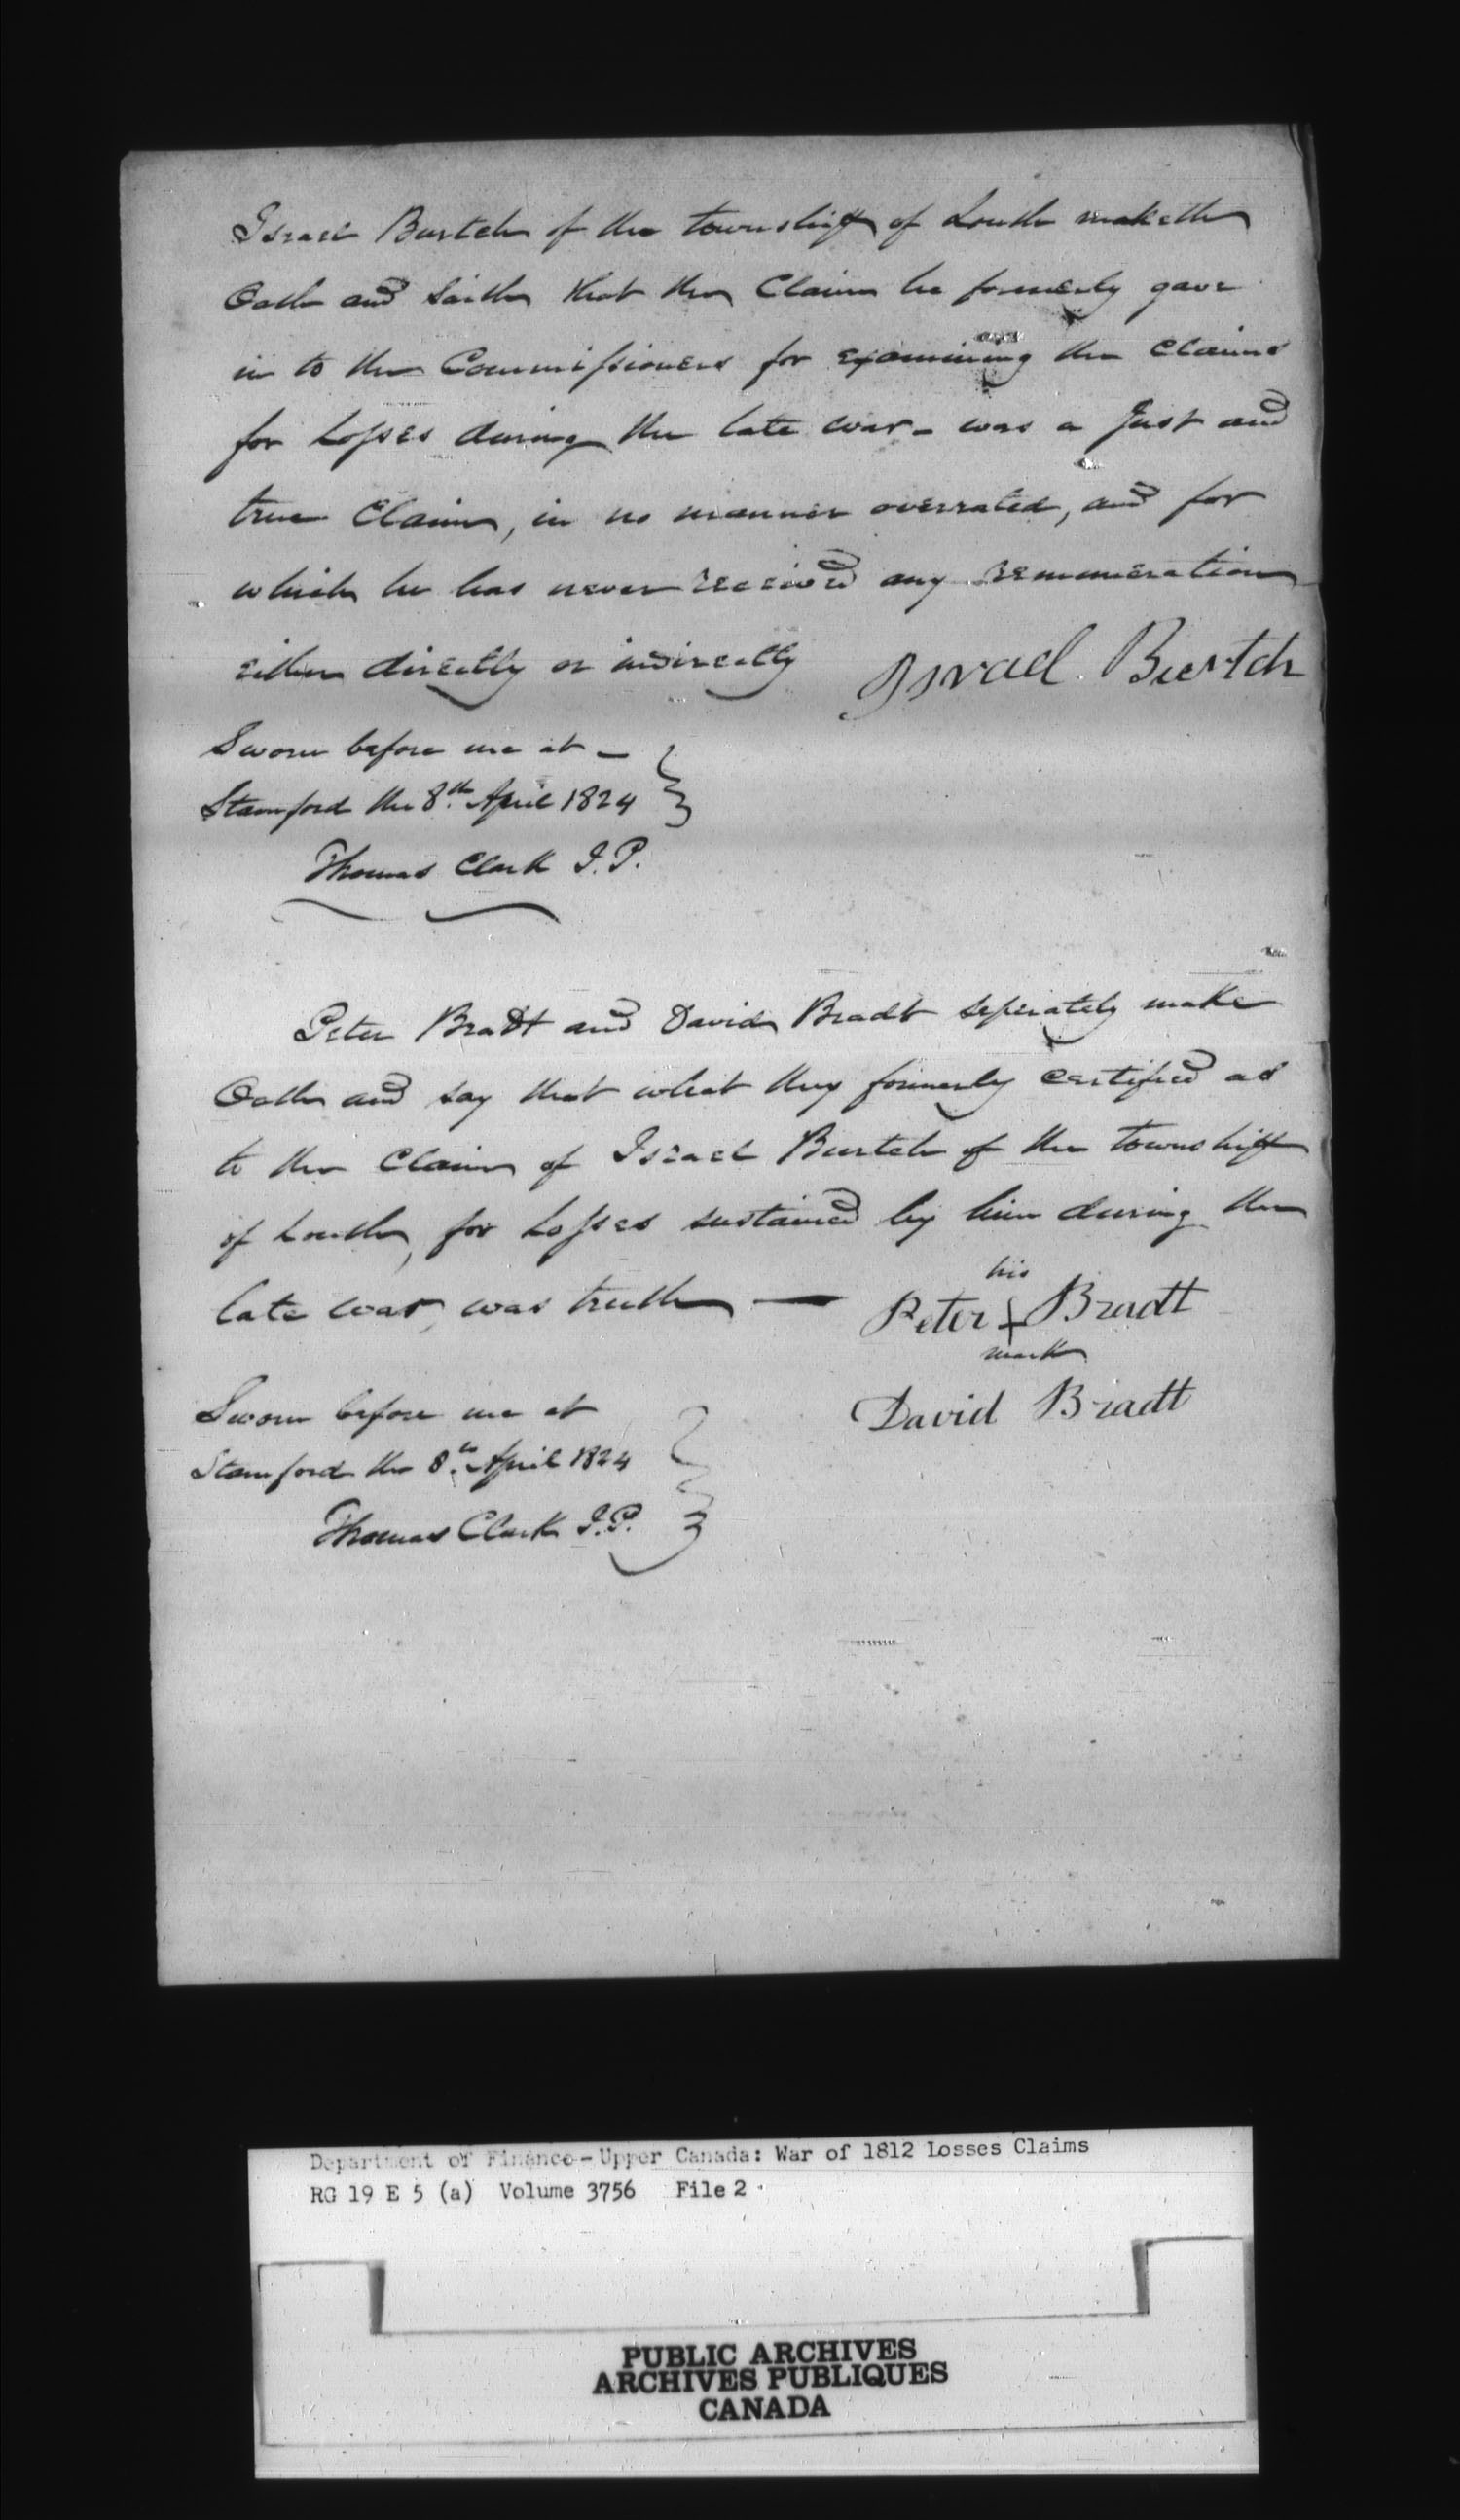 Israel Burtch of the township of Louth maketh
Oath and saith that the Claim he formerly gave
in to the Commissioners for examining the Claims
for Losses during the late war - was a Just and
true Claim, in no manner overrated, and for
which he has never received any remuneration
either directly or indirectly Israel Burtch
Sworn before me at -
Stamford the 8th April 1824
Thomas Clark J.P.
Peter Bradt and David Bradt seperately make
Oath and say that what they formerly certified as
to the Claim of Israel Burtch of the township
of Louth, for Losses sustained by him during the
late war, was truth —
his
Peter + Bradt
mark
David Bradt
Sworn before me at
Stamford the 8th April 1824
Thomas Clark J.P.
Department of Finance - Upper Canada: War of 1812 Losses Claims
RG 19 E 5 (a) Volume 3756 File 2
PUBLIC ARCHIVES
ARCHIVES PUBLIQUES
CANADA